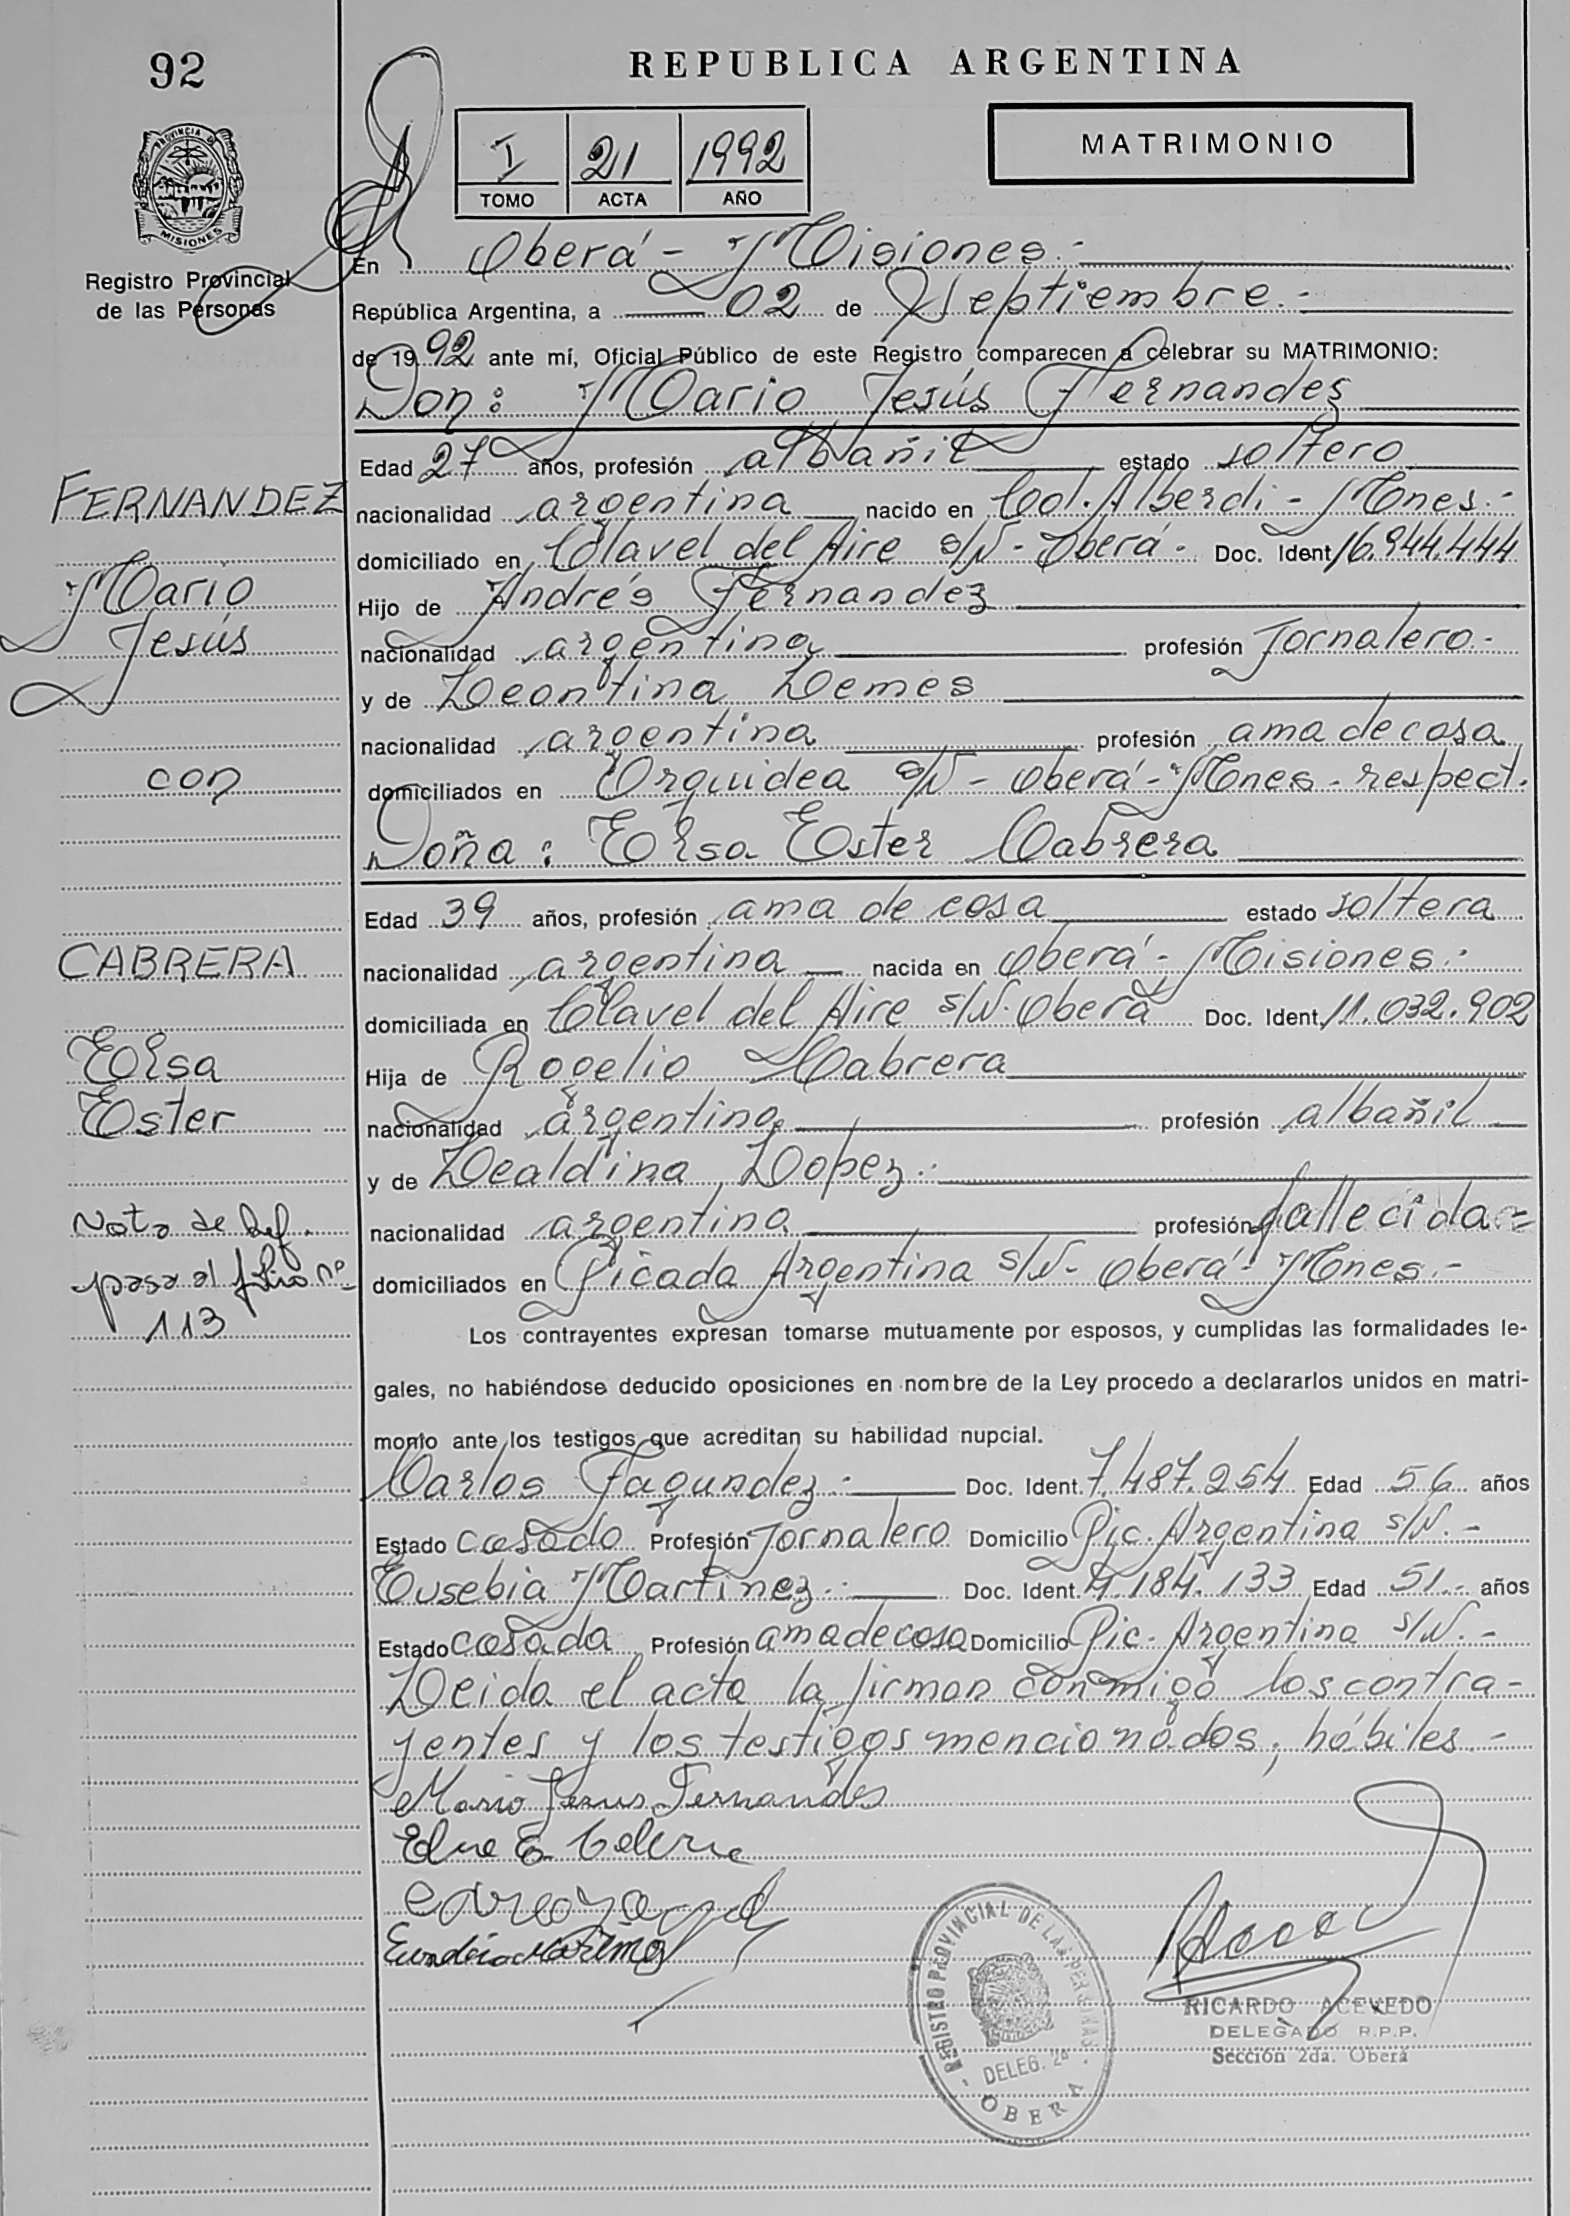 92
REPUBLICA ARGENTINA
PROVINCIA D
MISIONES
I 211 1992
TOMO ACTA AÑO
MATRIMONIO
Registro Provincial
de las Personas
En Oberá - Misiones.-
República Argentina, a 02 de Septiembre.-
de 1992 ante mí, Oficial Público de este Registro comparecen a celebrar su MATRIMONIO:
Don: Mario Jesús Fernandez
Edad 27 años, profesión albañil estado soltero
FERNANDEZ
nacionalidad argentina nacido en Col. Alberdi - Mones.-
domiciliado en Clavel del Aire s/N - Oberá - Doc. Ident. 16.944.444
Mario
Hijo de Andrés Fernandez
Jesús
nacionalidad argentina profesión Jornalero.-
y de Leontina Lemes
nacionalidad argentina profesión ama de casa
con
domiciliados en Orquidea s/N - Oberá - Mones - respect.
Doña: Elsa Ester Cabrera
Edad 39 años, profesión ama de casa estado soltera
CABRERA
nacionalidad argentina nacida en Oberá - Misiones.-
domiciliada en Clavel del Aire s/N. Oberá Doc. Ident. 11.032.902
Elsa
Hija de Rogelio Cabrera
Ester
nacionalidad argentina profesión albañil
y de Lealdina Lopez.-
Nota de Ref.
nacionalidad argentina profesión fallecida=
pasa al folio nº
domiciliados en Picada Argentina s/N - Oberá - Mones.-
113
Los contrayentes expresan tomarse mutuamente por esposos, y cumplidas las formalidades le-
gales, no habiéndose deducido oposiciones en nombre de la Ley procedo a declararlos unidos en matri-
monio ante los testigos que acreditan su habilidad nupcial.
Carlos Fagundez.- Doc. Ident. 7.487.254 Edad 56 años
Estado casado Profesión Jornalero Domicilio Pic. Argentina s/N.-
Eusebia Martinez.- Doc. Ident. 4.184.133 Edad 51.- años
Estado casada Profesión ama de casa Domicilio Pic. Argentina s/N.-
Leida el acta la firman conmigo los contra-
yentes y los testigos mencionados, hábiles.-
Mario Jesus Fernandes
Elsa E. Cabrera
REGISTRO PROVINCIAL DE LAS PERSONAS
DELEG. 2ª
OBERA
RICARDO ACEVEDO
DELEGADO R.P.P.
Sección 2da. Oberá